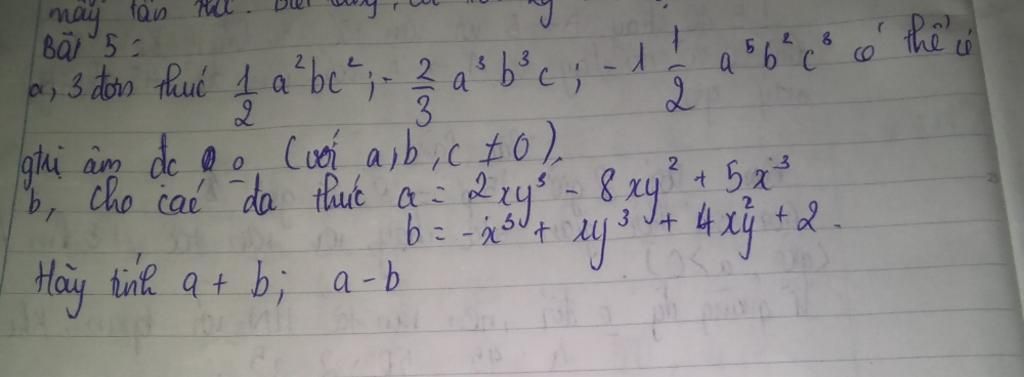 mấy tấn
Bài 5 :
a, 3 đơn thức 1/2 a²bc² ; - 2/3 a³b³c ; - 1 1/2 a⁵b²c³ có thể có
ghị âm đc 0 (với a, b, c ≠ 0).
b, Cho các đa thức a = 2xy³ - 8xy² + 5x³
b = -x³ + xy³ + 4xy² + 2 .
Hãy tính a + b ; a - b